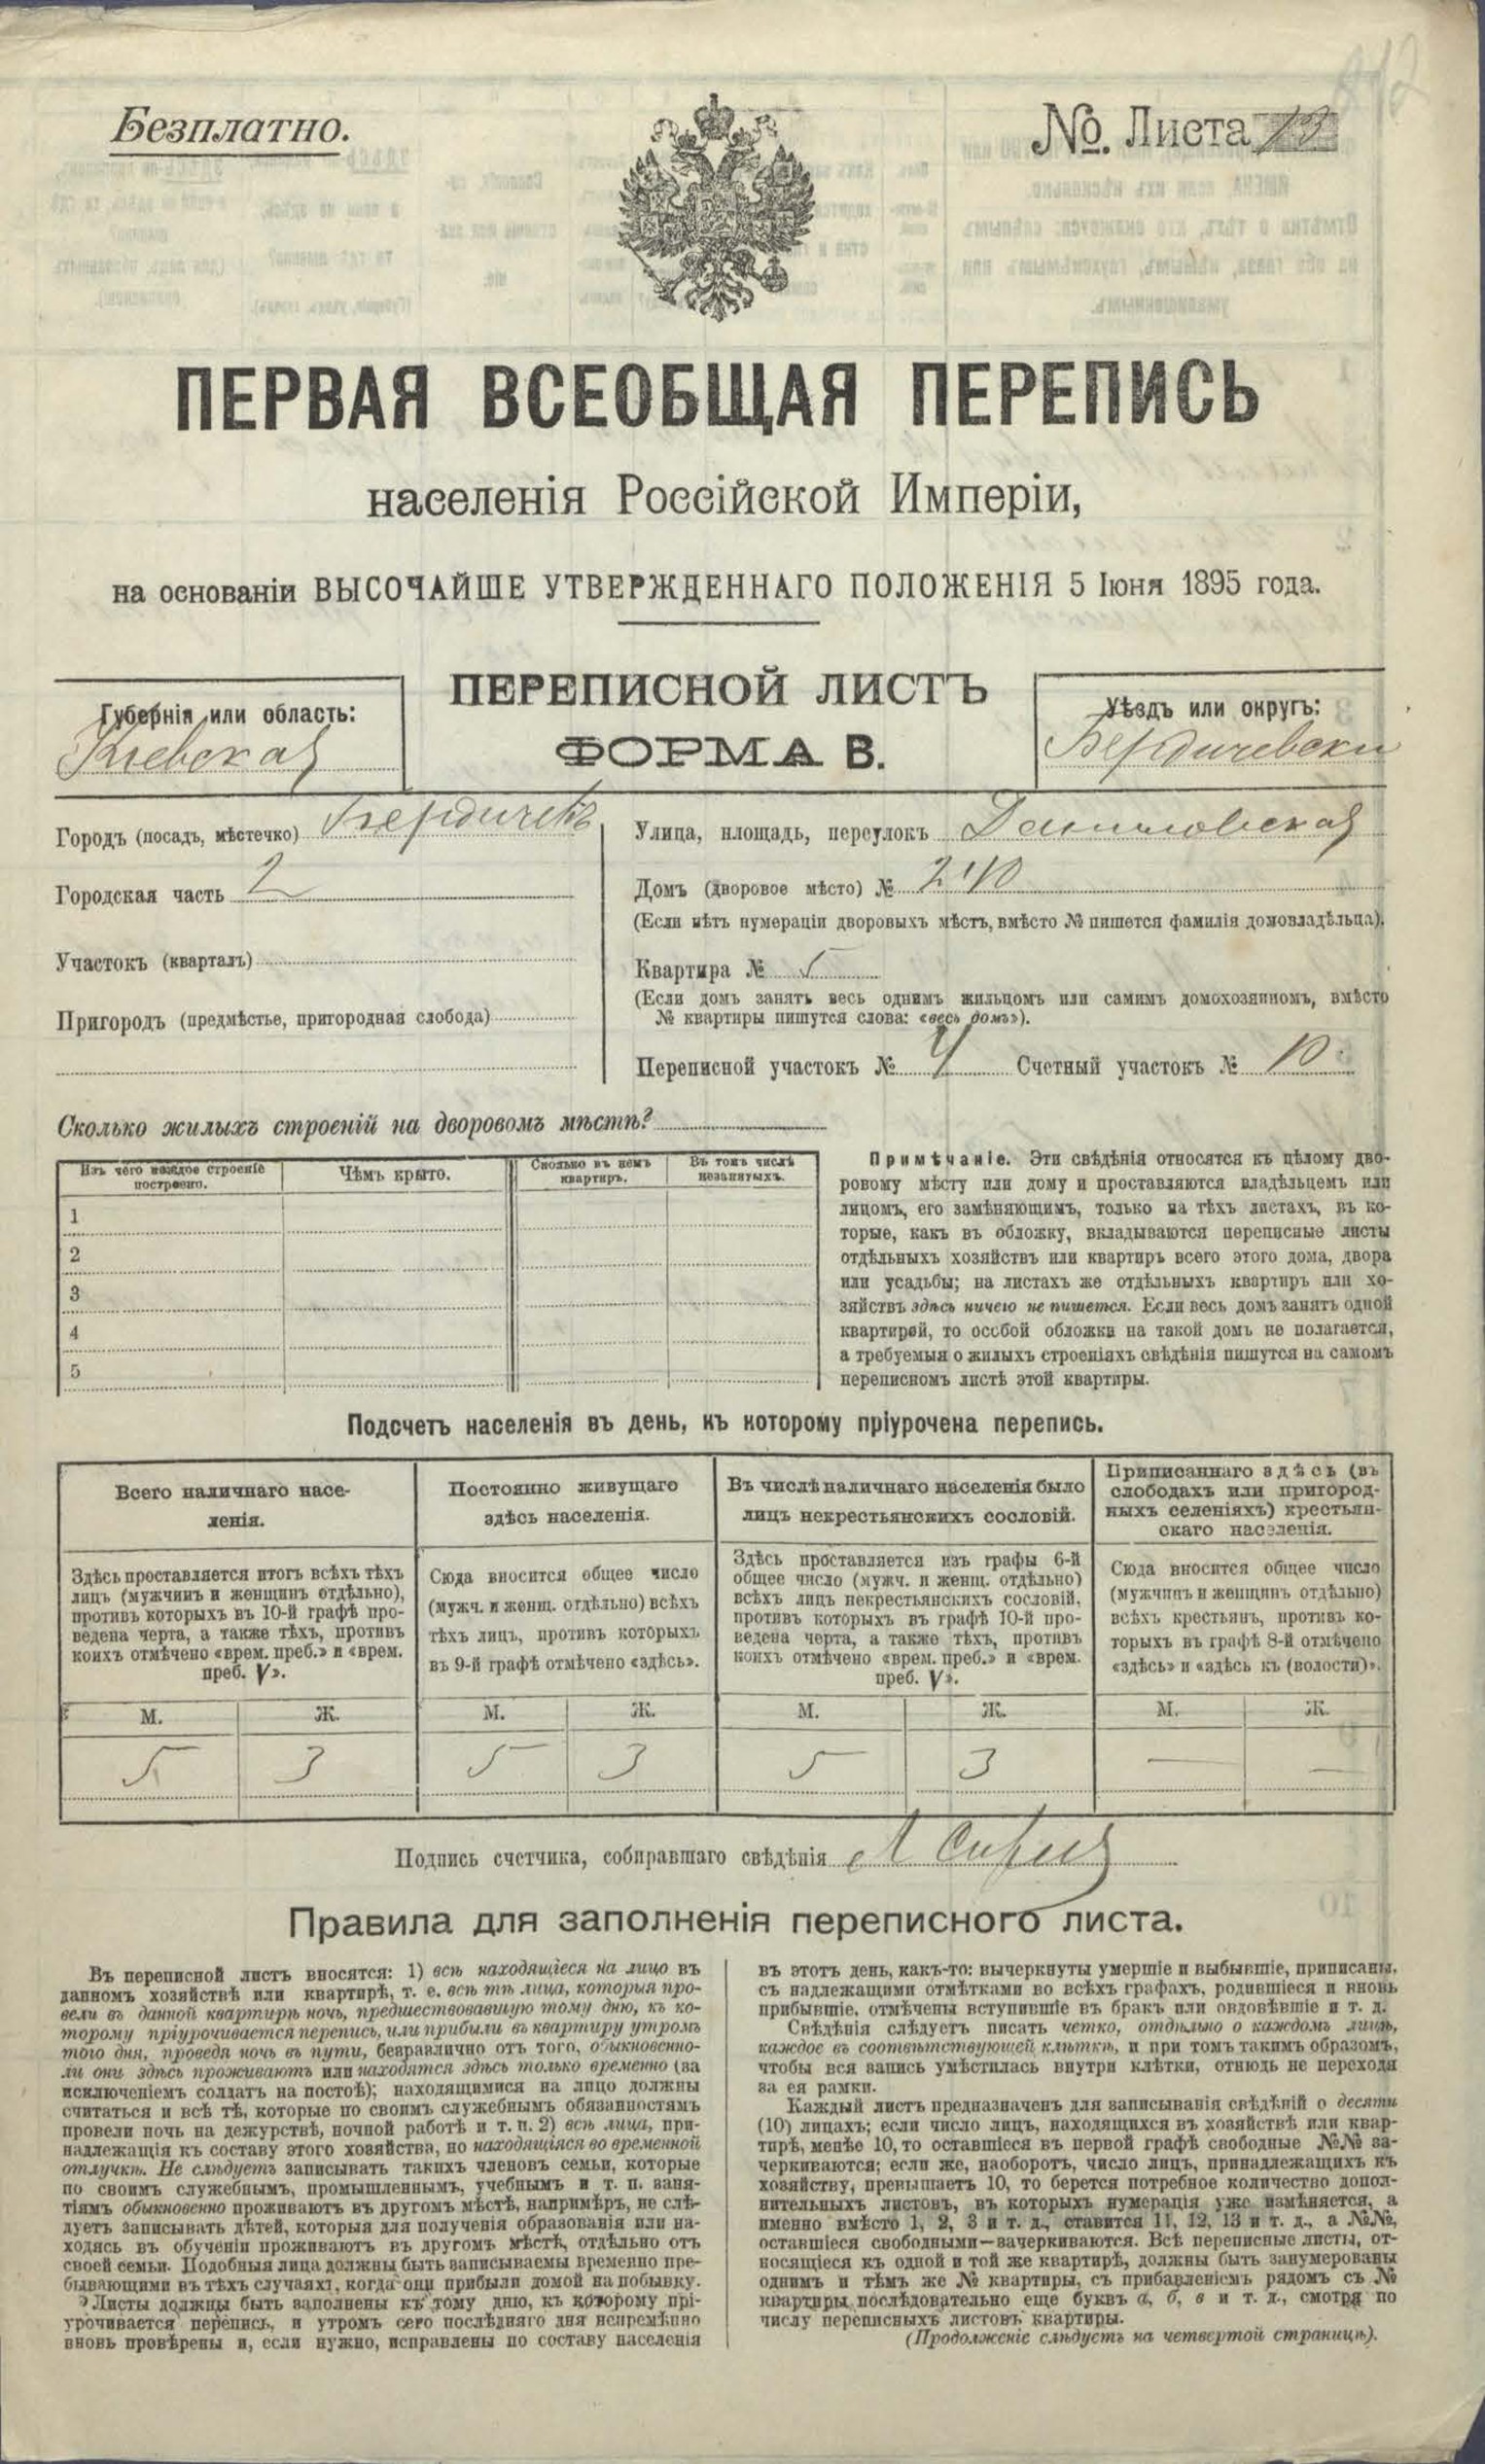 Безплатно.
№. Листа 13
ПЕРВАЯ ВСЕОБЩАЯ ПЕРЕПИСЬ
населенія Россійской Имперіи,
на основаніи ВЫСОЧАЙШЕ УТВЕРЖДЕННАГО ПОЛОЖЕНІЯ 5 Іюня 1895 года.
ПЕРЕПИСНОЙ ЛИСТЪ
ФОРМА В.
Губернія или область:
Кіевская
Уѣздъ или округъ:
Бердичевски
Городъ (посадъ, мѣстечко) Бердичевъ
Городская часть 2
Участокъ (кварталъ)
Пригородъ (предмѣстье, пригородная слобода)
Улица, площадь, переулокъ Даниловская
Домъ (дворовое мѣсто) №
(Если нѣтъ нумераціи дворовыхъ мѣстъ, вмѣсто № пишется фамилія домовладѣльца).
Квартира № 5
(Если домъ занятъ весь однимъ жильцомъ или самимъ домохозяиномъ, вмѣсто
№ квартиры пишутся слова: «весь домъ»).
Переписной участокъ № 4 Счетный участокъ № 10
Сколько жилыхъ строеній на дворовомъ мѣстѣ?
Изъ чего каждое строеніе
построено.
Чѣмъ крыто.
Сколько въ немъ
квартиръ.
Въ томъ числѣ
незанятыхъ.
1
2
3
4
5
Примѣчаніе. Эти свѣдѣнія относятся къ цѣлому дво-
ровому мѣсту или дому и проставляются владѣльцемъ или
лицомъ, его замѣняющимъ, только на тѣхъ листахъ, въ ко-
торые, какъ въ обложку, вкладываются переписные листы
отдѣльныхъ хозяйствъ или квартиръ всего этого дома, двора
или усадьбы; на листахъ же отдѣльныхъ квартиръ или хо-
зяйствъ здѣсь ничего не пишется. Если весь домъ занятъ одной
квартирой, то особой обложки на такой домъ не полагается,
а требуемыя о жилыхъ строеніяхъ свѣдѣнія пишутся на самомъ
переписномъ листѣ этой квартиры.
Подсчетъ населенія въ день, къ которому пріурочена перепись.
Всего наличнаго насе-
ленія.
Постоянно живущаго
здѣсь населенія.
Въ числѣ наличнаго населенія было
лицъ некрестьянскихъ сословій.
Приписаннаго здѣсь (въ
слободахъ или пригород-
ныхъ селеніяхъ) крестьян-
скаго населенія.
Здѣсь проставляется итогъ всѣхъ тѣхъ
лицъ (мужчинъ и женщинъ отдѣльно),
противъ которыхъ въ 10-й графѣ про-
ведена черта, а также тѣхъ, противъ
коихъ отмѣчено «врем. преб.» и «врем.
преб. V».
Сюда вносится общее число
(мужч. и женщ. отдѣльно) всѣхъ
тѣхъ лицъ, противъ которыхъ
въ 9-й графѣ отмѣчено «здѣсь».
Здѣсь проставляется изъ графы 6-й
общее число (мужч. и женщ. отдѣльно)
всѣхъ лицъ некрестьянскихъ сословій,
противъ которыхъ въ графѣ 10-й про-
ведена черта, а также тѣхъ, противъ
коихъ отмѣчено «врем. преб.» и «врем.
преб. V».
Сюда вносится общее число
(мужчинъ и женщинъ отдѣльно)
всѣхъ крестьянъ, противъ ко-
торыхъ въ графѣ 8-й отмѣчено
«здѣсь» и «здѣсь къ (волости)».
М. Ж. М. Ж. М. Ж. М. Ж.
5 3 5 3 5 3 — —
Подпись счетчика, собиравшаго свѣдѣнія
Правила для заполненія переписного листа.
Въ переписной листъ вносятся: 1) всѣ находящіеся на лицо въ
данномъ хозяйствѣ или квартирѣ, т. е. всѣ тѣ лица, которыя про-
вели въ данной квартирѣ ночь, предшествовавшую тому дню, къ ко-
торому пріурочивается перепись, или прибыли въ квартиру утромъ
того дня, проведя ночь въ пути, безразлично отъ того, обыкновенно-
ли они здѣсь проживаютъ или находятся здѣсь только временно (за
исключеніемъ солдатъ на постоѣ); находящимися на лицо должны
считаться и всѣ тѣ, которые по своимъ служебнымъ обязанностямъ
провели ночь на дежурствѣ, ночной работѣ и т. п. 2) всѣ лица, при-
надлежащія къ составу этого хозяйства, но находящіяся во временной
отлучкѣ. Не слѣдуетъ записывать такихъ членовъ семьи, которые
по своимъ служебнымъ, промышленнымъ, учебнымъ и т. п. заня-
тіямъ обыкновенно проживаютъ въ другомъ мѣстѣ, напримѣръ, не слѣ-
дуетъ записывать дѣтей, которыя для полученія образованія или на-
ходясь въ обученіи проживаютъ въ другомъ мѣстѣ, отдѣльно отъ
своей семьи. Подобныя лица должны быть записываемы временно пре-
бывающими въ тѣхъ случаяхъ, когда они прибыли домой на побывку.
Листы должны быть заполнены къ тому дню, къ которому прі-
урочивается перепись, и утромъ сего послѣдняго дня непремѣнно
вновь провѣрены и, если нужно, исправлены по составу населенія
въ этотъ день, какъ-то: вычеркнуты умершіе и выбывшіе, приписаны,
съ надлежащими отмѣтками во всѣхъ графахъ, родившіеся и вновь
прибывшіе, отмѣчены вступившіе въ бракъ или овдовѣвшіе и т. д.
Свѣдѣнія слѣдуетъ писать четко, отдѣльно о каждомъ лицѣ,
каждое въ соотвѣтствующей клѣткѣ, и при томъ такимъ образомъ,
чтобы вся запись умѣстилась внутри клѣтки, отнюдь не переходя
за ея рамки.
Каждый листъ предназначенъ для записыванія свѣдѣній о десяти
(10) лицахъ; если число лицъ, находящихся въ хозяйствѣ или квар-
тирѣ, менѣе 10, то оставшіеся въ первой графѣ свободные №№ за-
черкиваются; если же, наоборотъ, число лицъ, принадлежащихъ къ
хозяйству, превышаетъ 10, то берется потребное количество допол-
нительныхъ листовъ, въ которыхъ нумерація уже измѣняется, а
именно вмѣсто 1, 2, 3 и т. д., ставится 11, 12, 13 и т. д., а №№,
оставшіеся свободными—зачеркиваются. Всѣ переписные листы, от-
носящіеся къ одной и той же квартирѣ, должны быть занумерованы
однимъ и тѣмъ же № квартиры, съ прибавленіемъ рядомъ съ №
квартиры послѣдовательно еще буквъ а, б, в и т. д., смотря по
числу переписныхъ листовъ квартиры.
(Продолженіе слѣдуетъ на четвертой страницѣ).